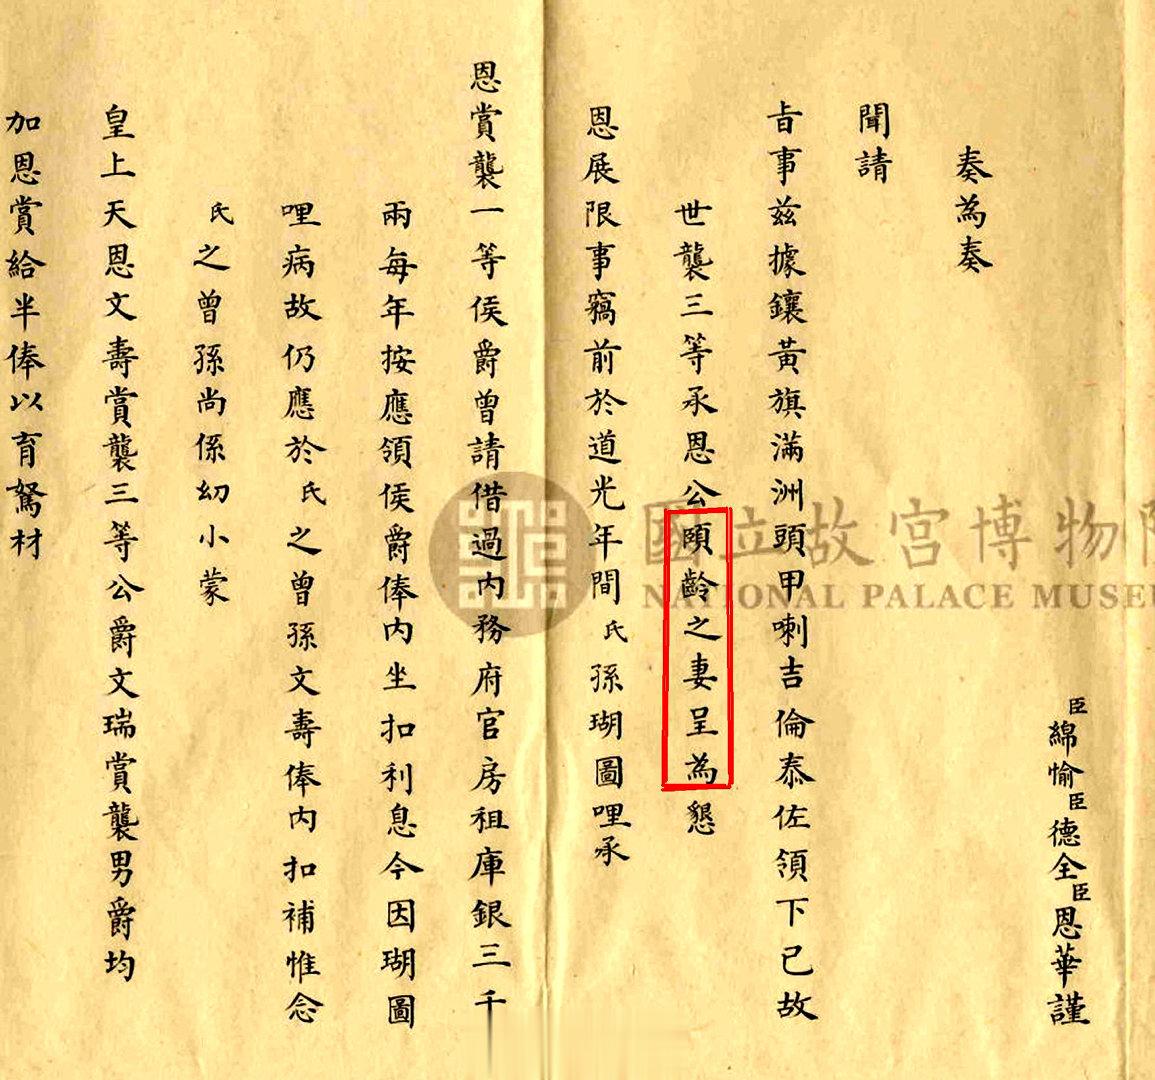 臣綿愉臣德全臣恩華謹
奏為奏
聞請
旨事兹據鑲黃旗滿洲頭甲喇吉倫泰佐領下已故
世襲三等承恩公頤齡之妻呈為懇
恩展限事竊前於道光年間氏孫瑚圖哩承
恩賞襲一等侯爵曾請借過內務府官房租庫銀三千
兩每年按應領侯爵俸內坐扣利息今因瑚圖
哩病故仍應於氏之曾孫文壽俸內扣補惟念
氏之曾孫尚係幼小蒙
皇上天恩文壽賞襲三等公爵文瑞賞襲男爵均
加恩賞給半俸以育駑材
國立故宮博物院
NATIONAL PALACE MUSEU